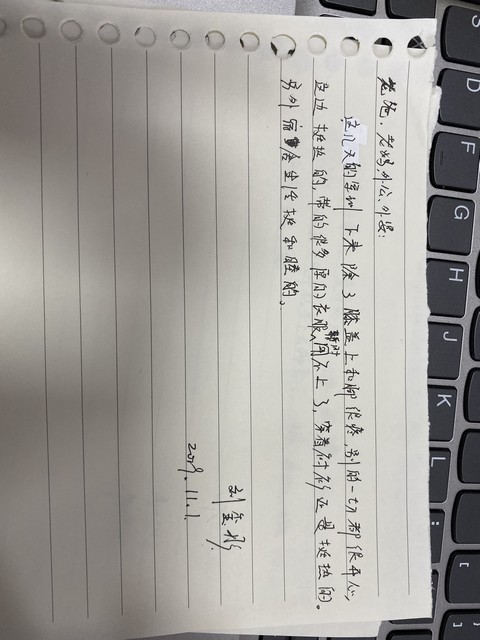 老爸、老妈、外公、外婆:
这几天的军训下来除了膝盖上和脚很疼,别的一切都很开心,
这边挺热的,带的很多厚的衣服暂时用不上了,穿着衬衫还是挺热的。
另外宿舍生活挺和睦的。
刘
2019.11.1
S
D
F
G
H
J
K
L
:
;
[